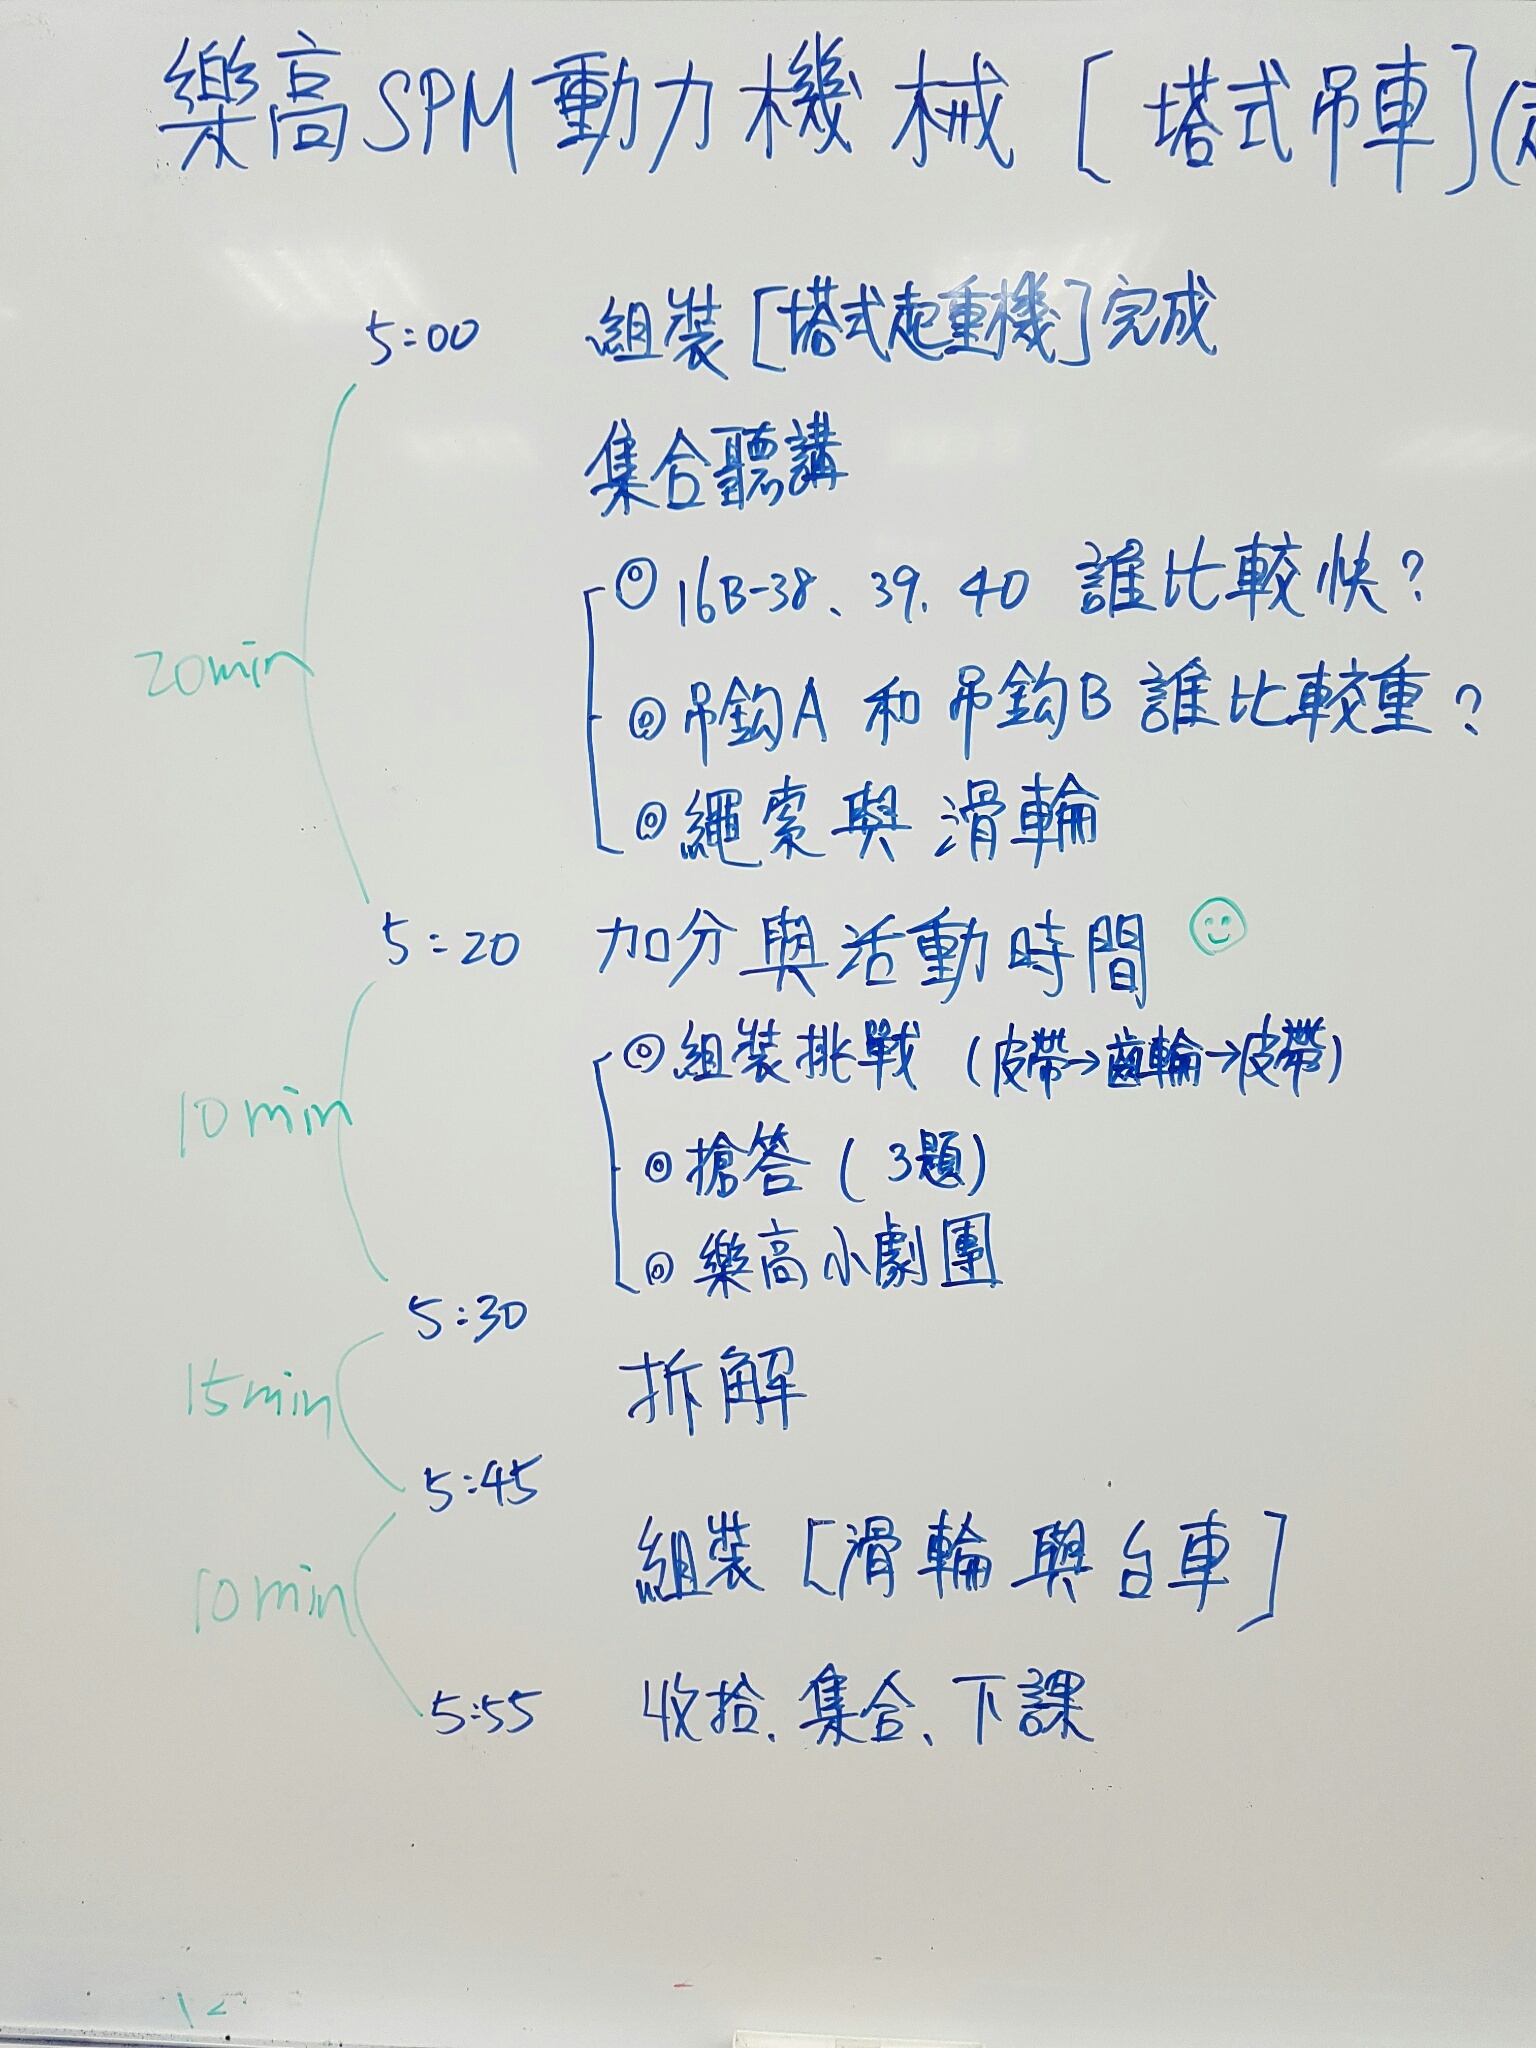 樂高SPM動力機械[塔式吊車](
5:00 組裝[塔式起重機]完成
集合聽講
◎16B-38、39、40 誰比較快?
20min
◎吊鈎A 和 吊鈎B 誰比較重?
◎繩索與滑輪
5:20 加分與活動時間
◎組裝挑戰 (皮帶→齒輪→皮帶)
10min
◎搶答(3題)
◎樂高小劇團
5:30
拆解
15min
5:45
組裝[滑輪與台車]
10min
5:55 收拾、集合、下課